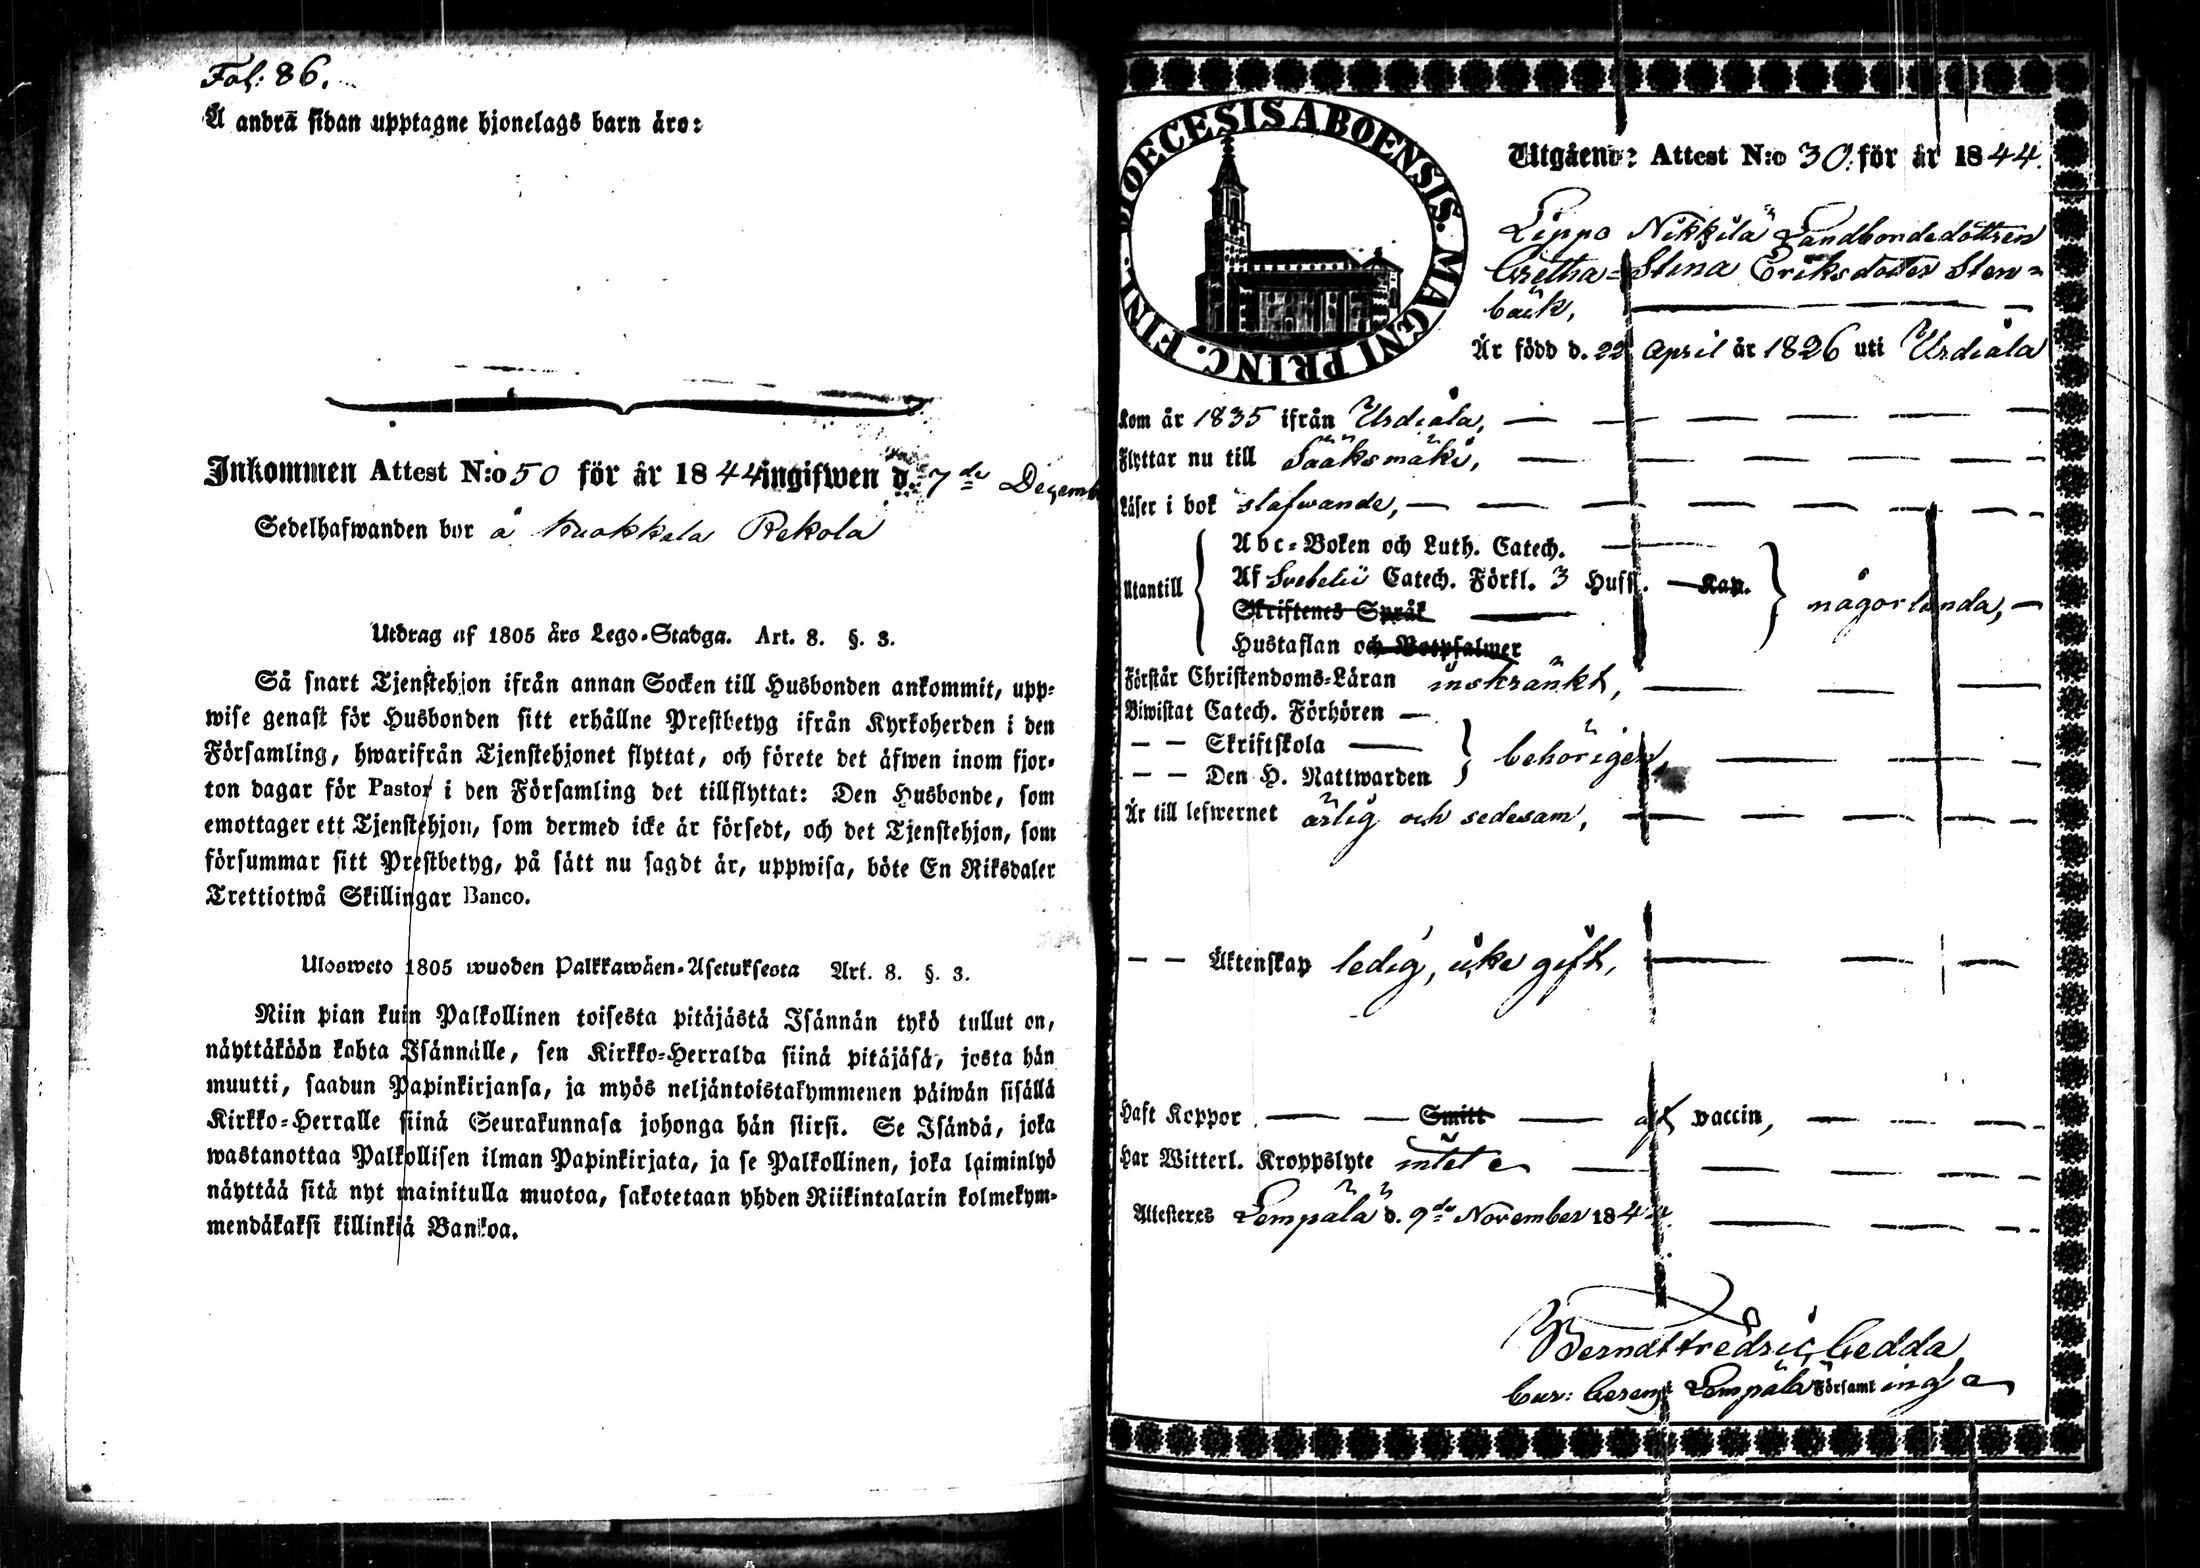 Fol: 86.
Å andra sidan upptagne hjonelags barn äro:
Inkommen Attest N:o 50 för år 1844 ingifwen d. 7de Decemb
Sedelhafwanden bor å Kuokkala Rekola
Utdrag af 1805 års Lego-Stadga. Art. 8. §. 3.
Så snart Tjenstehjon ifrån annan Socken till Husbonden ankommit, upp-
wise genast för Husbonden sitt erhållne Prestbetyg ifrån Kyrkoherden i den
Församling, hwarifrån Tjenstehjonet flyttat, och förete det äfwen inom fjor-
ton dagar för Pastor i den Församling det tillflyttat: Den Husbonde, som
emottager ett Tjenstehjon, som dermed icke är försedt, och det Tjenstehjon, som
försummar sitt Prestbetyg, på sätt nu sagdt är, uppwisa, böte En Riksdaler
Trettiotwå Skillingar Banco.
Ulosweto 1805 wuoden Palkkawäen-Asetuksesta Art. 8. §. 3.
Niin pian kuin Palkollinen toisesta pitäjästä Isännän tykö tullut on,
näyttäköön kohta Isännälle, sen Kirkko-Herralda siinä pitäjäsä, josta hän
muutti, saadun Papinkirjansa, ja myös neljäntoistakymmenen päiwän sisällä
Kirkko-Herralle siinä Seurakunnasa johonga hän siirsi. Se Isändä, joka
wastanottaa Palkollisen ilman Papinkirjata, ja se Palkollinen, joka laiminlyö
näyttää sitä nyt mainitulla muotoa, sakotetaan yhden Riikintalarin kolmekym-
mendäkaksi killinkiä Bankoa.
DIOECESIS ABOENSIS. MAGNI PRINC. FINL.
Utgående Attest N:o 30. för år 1844.
Lippo Nikkilä Landbondedottren
Gretha-Stina Eriksdotter Sten-
bäck,
Är född d. 22 April år 1826 uti Urdiala
Kom år 1835 ifrån Urdiala,
Flyttar nu till Sääksmäki,
Läser i bok stafwande,
Utantill
Abc-Boken och Luth. Catech.
Af Svebelii Catech. Förkl. 3 Hufst. Kap.
Skriftenes Språk
Hustaflan och Botpsalmer
någorlunda,
Förstår Christendoms-Läran inskränkt,
Biwistat Catech. Förhören
— — Skriftskola
— — Den H. Nattwarden
behörigen,
Är till lefwernet ärlig och sedesam,
— — Äktenskap ledig, icke gift,
Haft Koppor — — Smitt — af vaccin,
Har Witterl. Kroppslyte intet
Attesteres Lempälä d. 9de November 1844.
Berndt Fredric Gedda
Cur: Gerens i Lempälä Församling